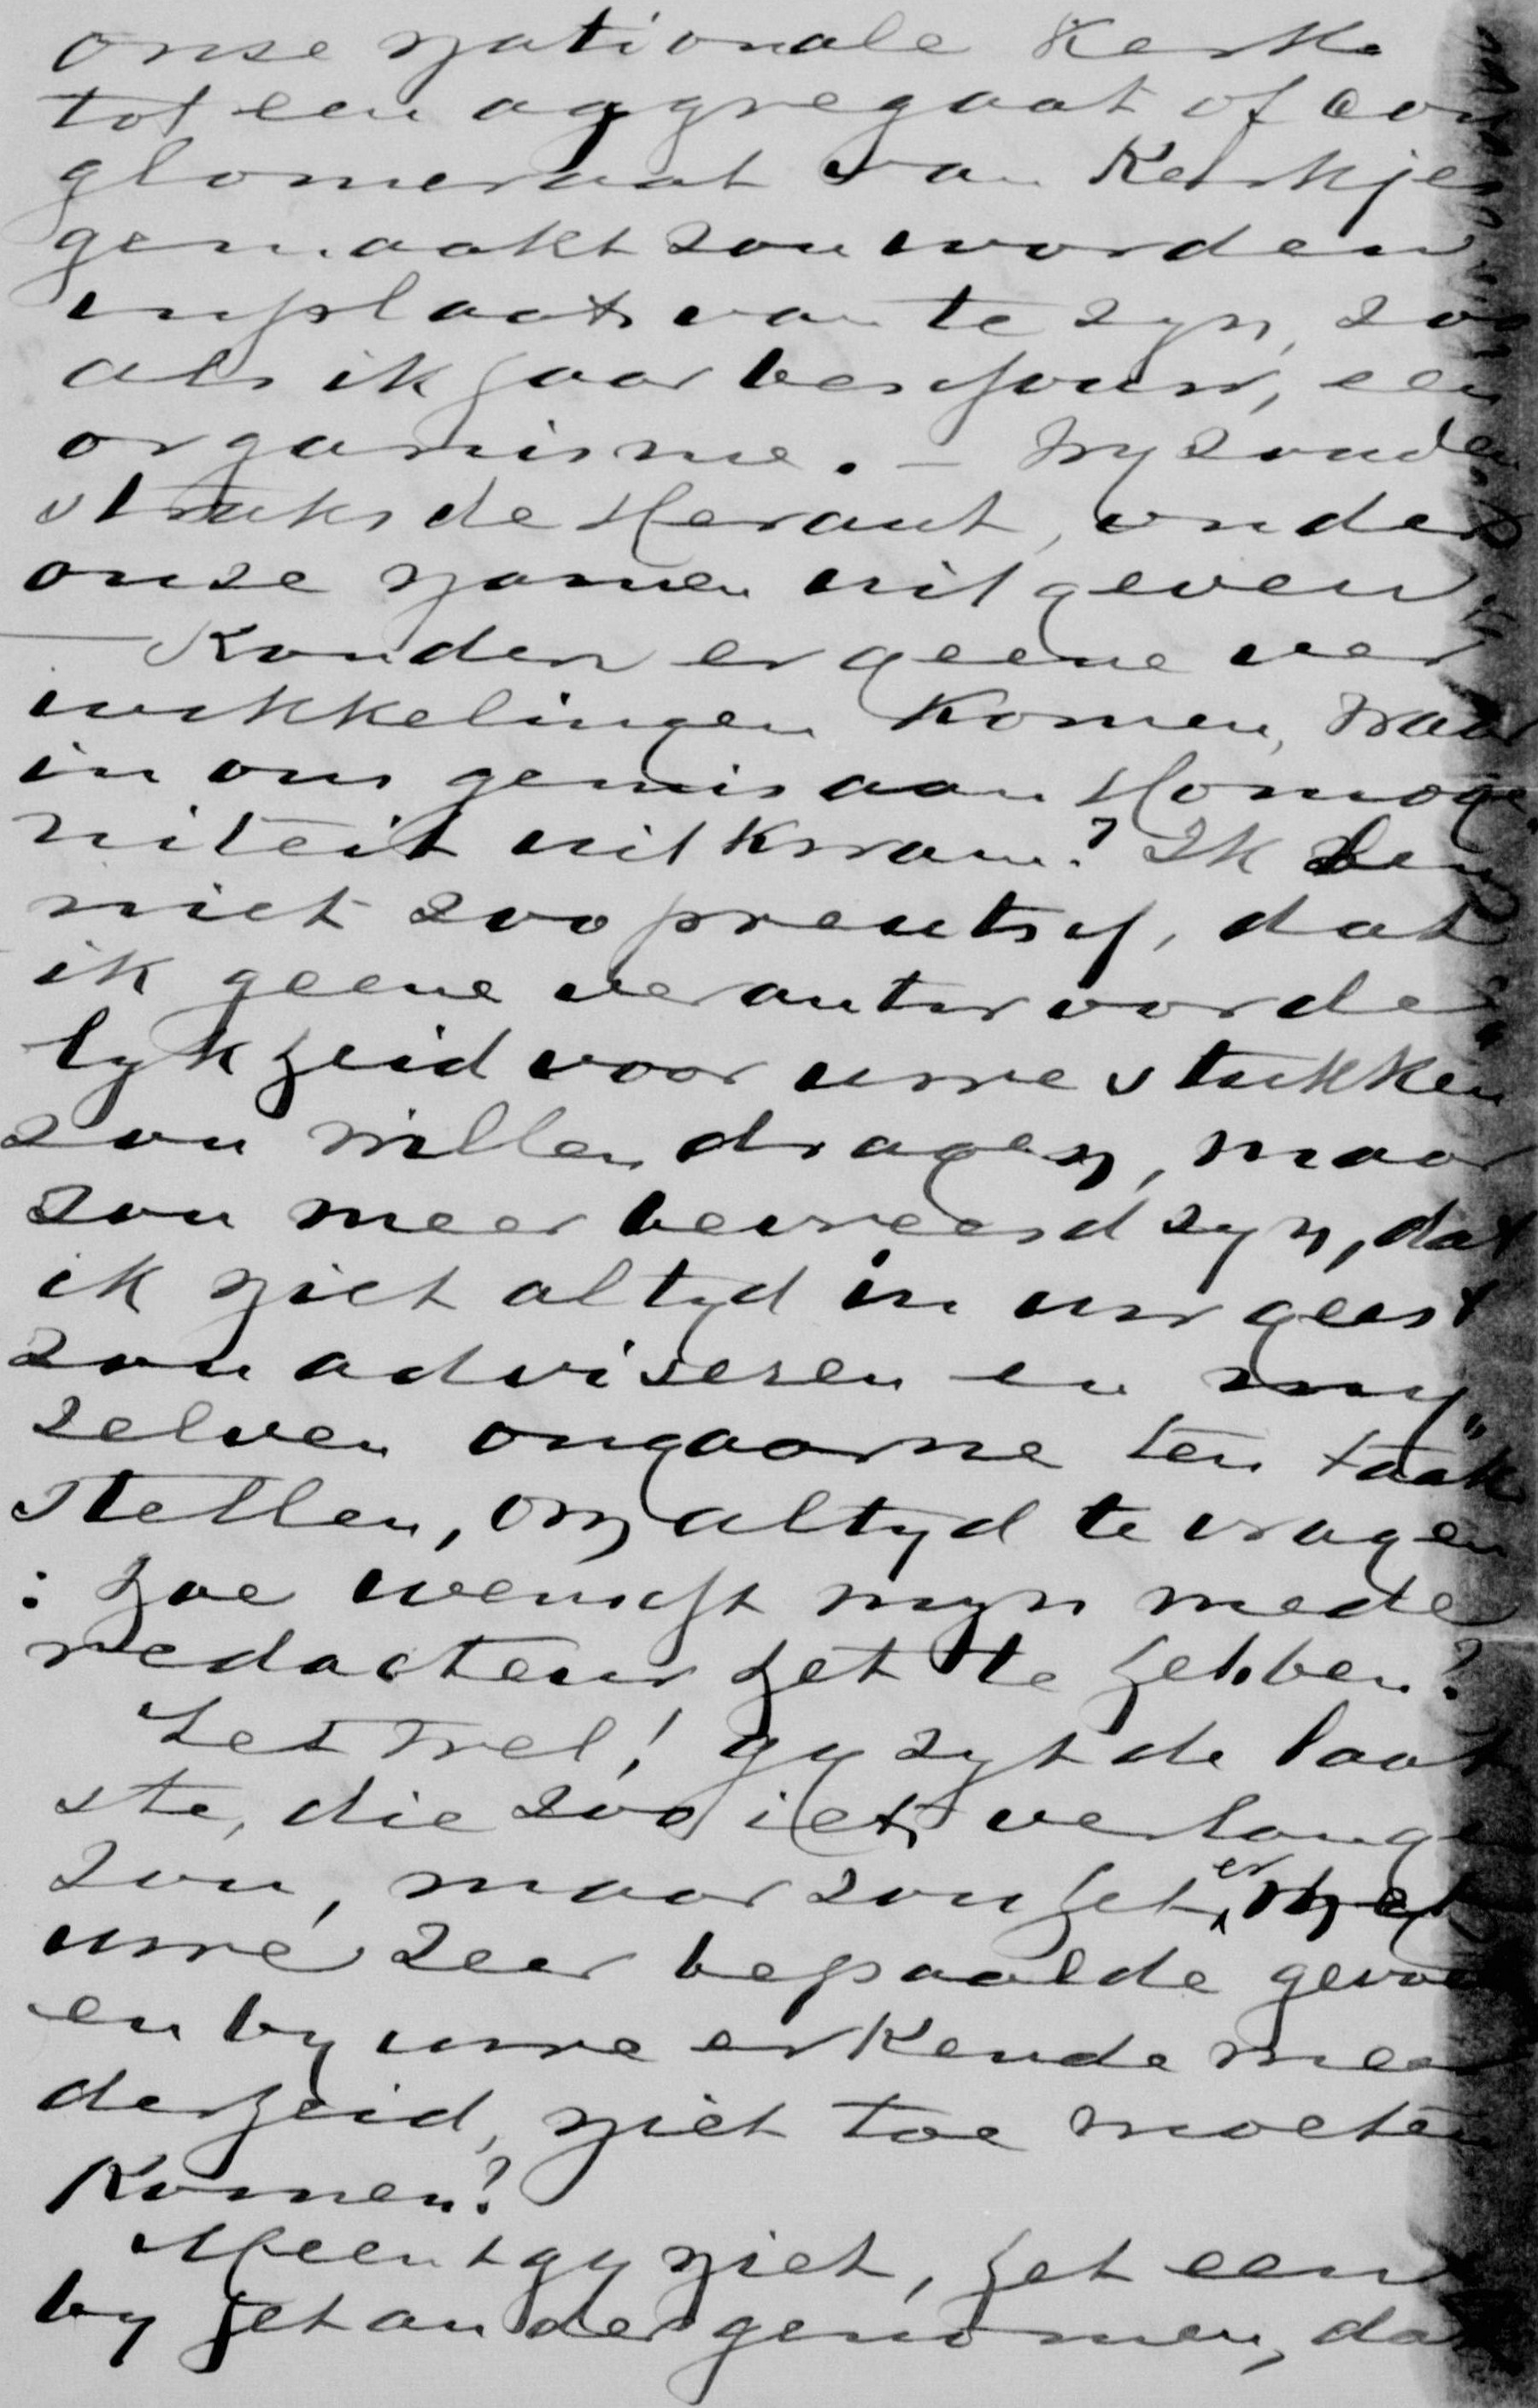 onse nationale Kerk
tot een aggregaat of con
glomeraat van Kerkjes
gemaakt zou worden
inplaats van te zyn, zoo
als ik haar beschouw, een
organisme. — Wy zouden
straks de Heraut, onder
onze namen uitgeven
— Konden er geene ver
wikkelingen komen, waar
in ons gemis aan Homoge
niteit uitkwam? Ik ben
niet zoo preutsch, dat
ik geene verantwoorde"
lykheid voor uwe stukken
zou willen dragen, maar
zou meer bevreesd zyn, dat
ik niet altyd in uw geest
zou adviseren en my"
zelven ongaarne ten taak
stellen, om altyd te vragen
: hoe wenscht myn mede
redacteur het te hebben?
Let wel! gy zyt de laat
ste, die zoo iets verlangen
zou, maar zou het er met
uwe zeer bepaalde
en by uwe erkende meer
derheid, niet toe moeten
komen?
Meent gy niet, het een
by het ander genomen, dat